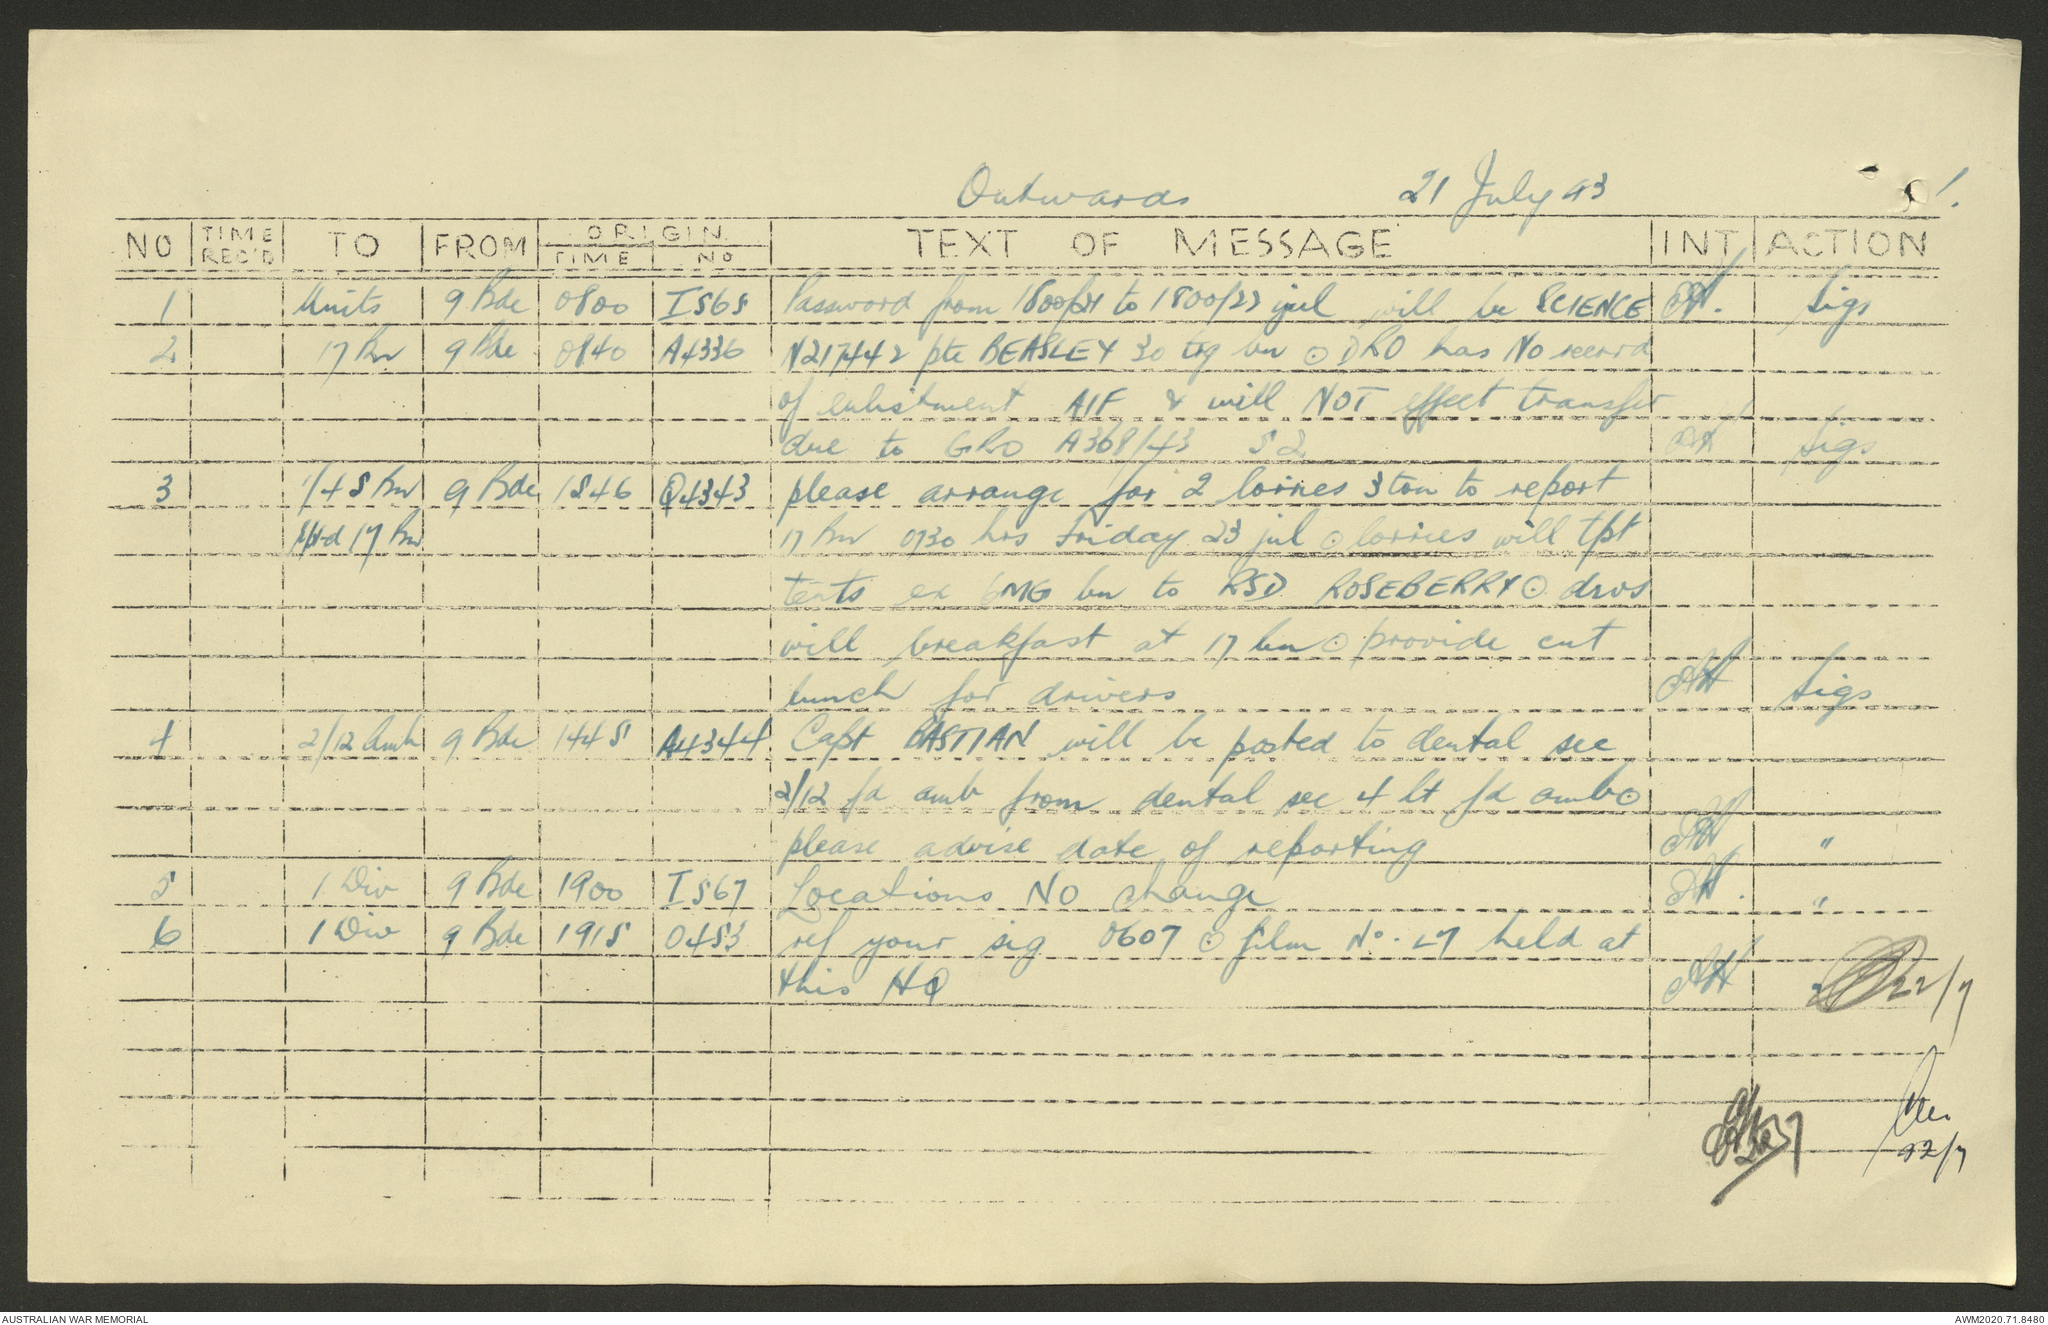 Outwards 21 July 43 1.
NO TIME REC'D TO FROM ORIGIN TIME NO TEXT OF MESSAGE INT ACTION
1 Units 9 Bde 0800 I565 Password from 1800/21 to 1800/23 jul will be SCIENCE Sigs
2 17 Bn 9 Bde 0840 A4336 N217442 pte BEASLEY 30 trg bn ⊙ DRO has No record
of enlistment AIF & will NOT effect transfer
due to GRO A368/43 S2 Sigs
3 1/45 Bn 9 Bde 1846 Q4343 please arrange for 2 lorries 3 ton to report
17 Bn 17 Bn 0730 hrs Friday 23 jul ⊙ lorries will tpt
tents ex 6MG bn to RSD ROSEBERRY ⊙ drvs
will breakfast at 17 bn ⊙ provide cut
lunch for drivers Sigs
4 2/12 Amb 9 Bde 1445 A4344 Capt BASTIAN will be posted to dental sec
2/12 fd amb from dental sec 4 lt fd amb ⊙
please advise date of reporting "
5 1 Div 9 Bde 1900 I567 Locations NO change "
6 1 Div 9 Bde 1915 O453 ref your sig 0607 ⊙ film No. 27 held at
this HQ 22/7
22/7
AUSTRALIAN WAR MEMORIAL AWM2020.71.8480